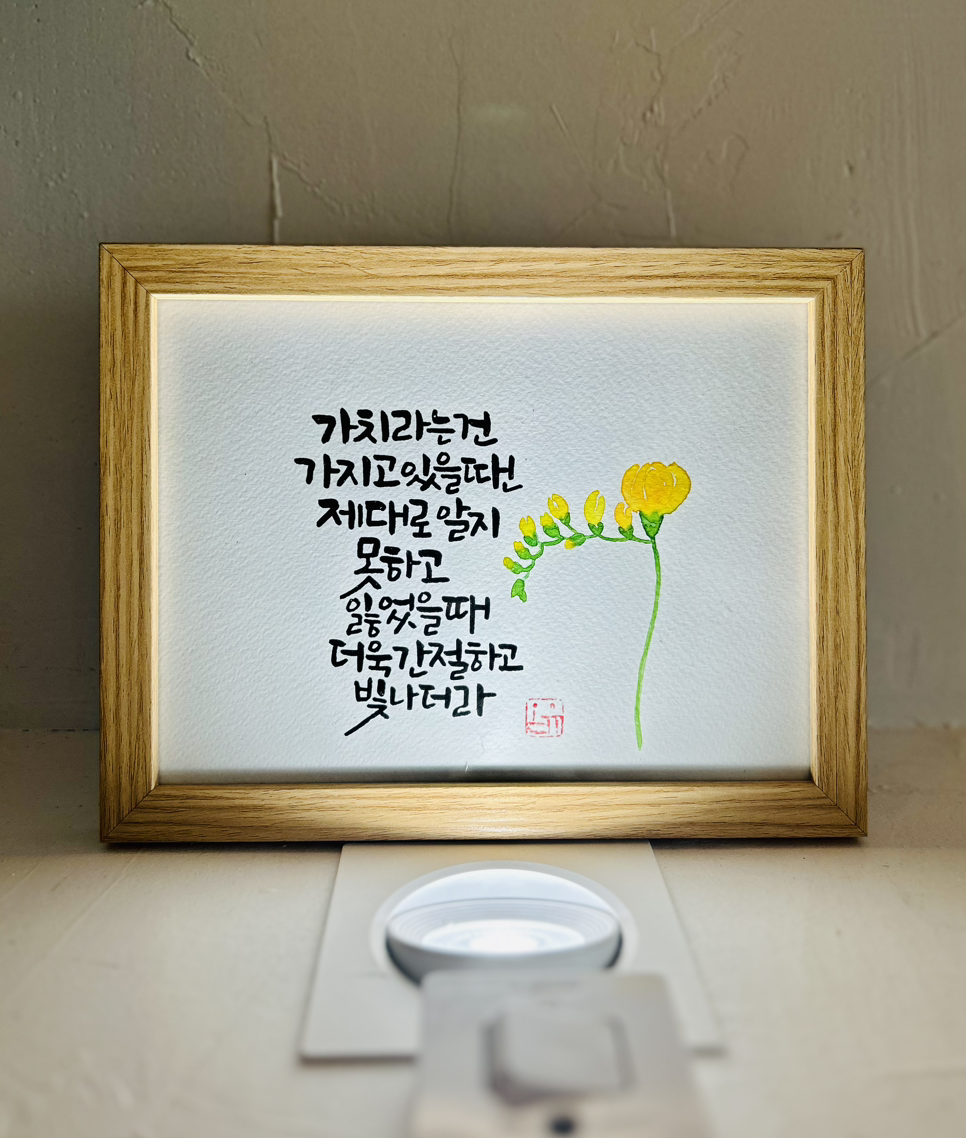 가치라는건
가지고있을때넌
제대로알지
못하고
잃었을때
더욱간절하고
빛나더라